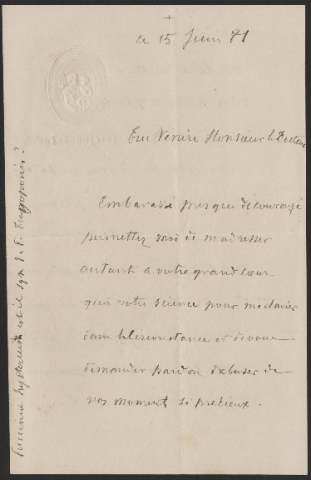 +
ce 15 Juin 81
Monsieur le Docteur
Embarassé presque découragé
permettez moi de m'adresser
autant à votre grand cœur
qu'à votre science pour m'éclairer
dans la circonstance et de vous
demander pardon d'abuser de
vos moment si précieux.
Puccinia
est-il syn.